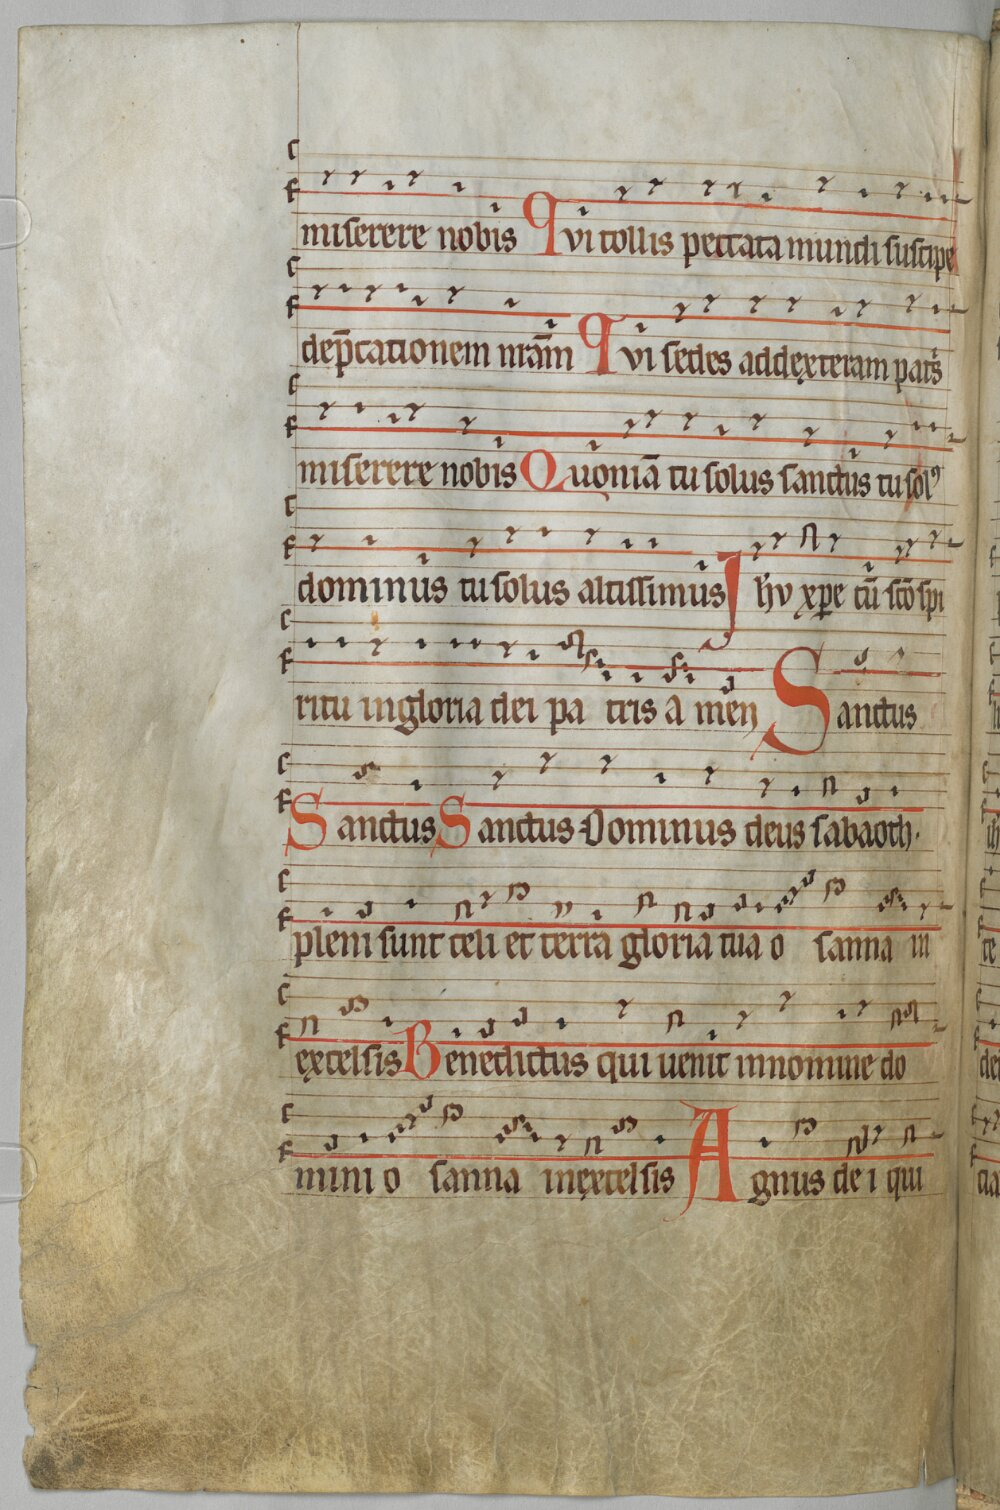 miserere nobis Qvi tollis peccata mundi suscipe
dep̄cationem nr̄am Qvi sedes addexteram patͥs
miserere nobis Quoniā tu solus sanctus tu solꝰ
dominus tu solus altissimus Jhv xp̄e cū sc̄o spi
ritu in gloria dei pa tris a men Sanctus
Sanctus Sanctus Dominus deus sabaoth.
pleni sunt celi et terra gloria tua o sanna in
excelsis Benedictus qui uenit innomine do
mini o sanna inexcelsis Agnus de i qui